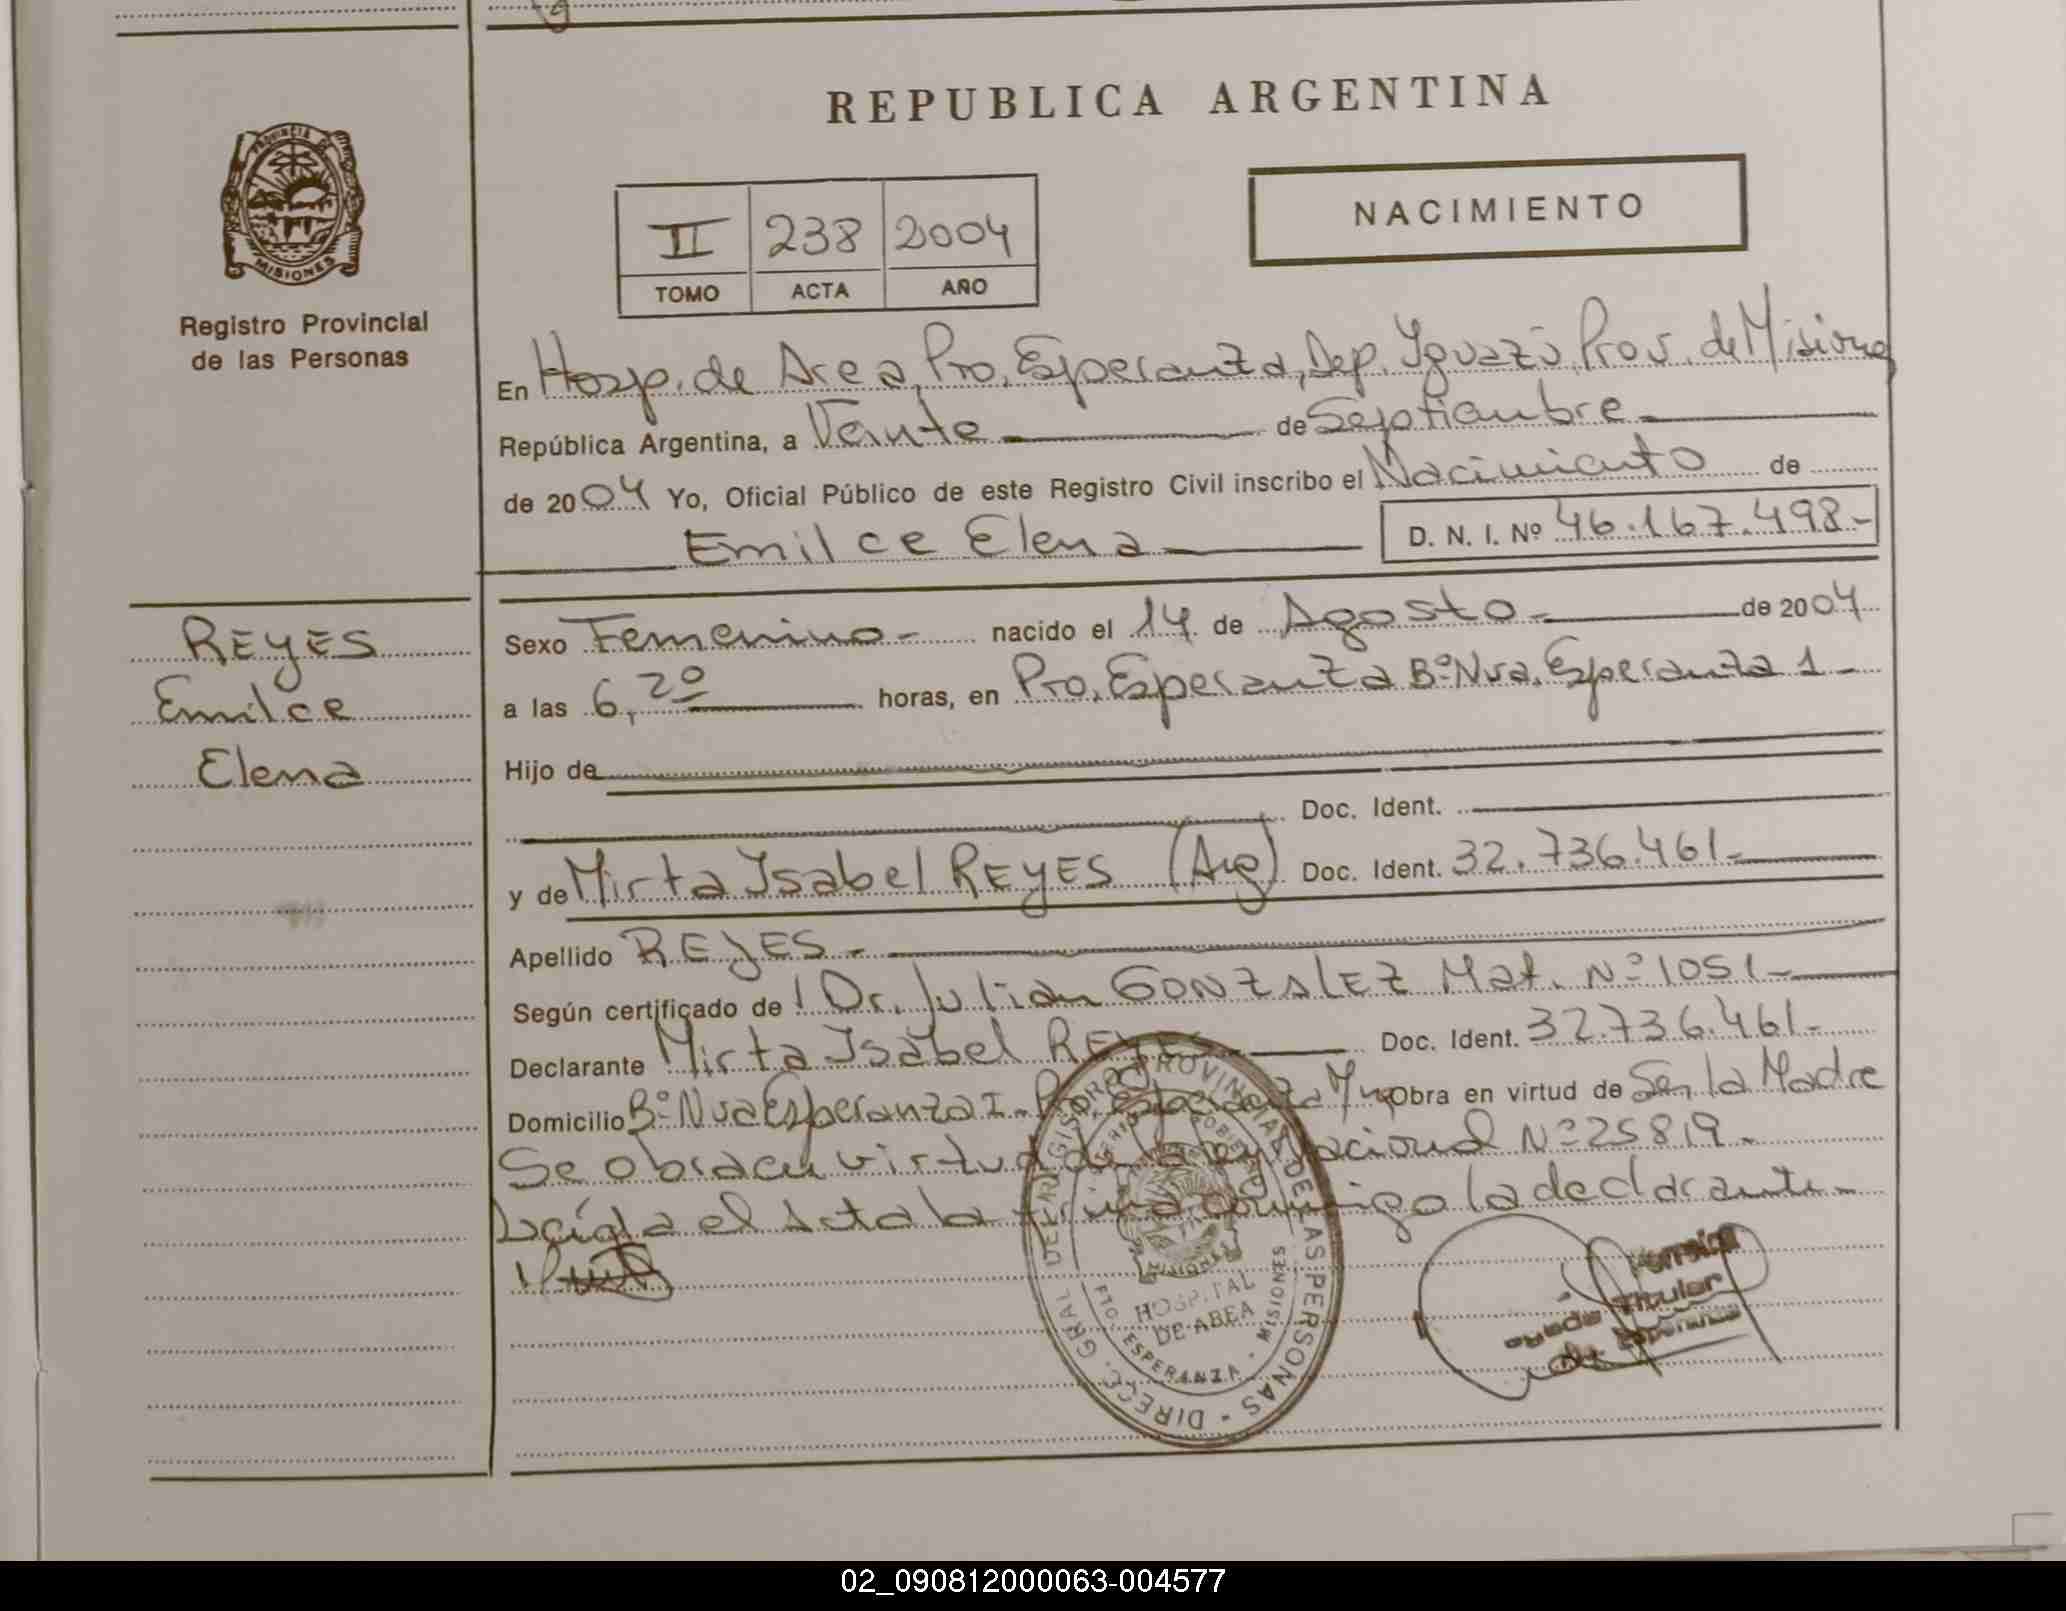 REPUBLICA ARGENTINA
PROVINCIA DE
MISIONES
Registro Provincial
de las Personas
II 238 2004
TOMO ACTA AÑO
NACIMIENTO
En Hosp. de Area, Pto. Esperanza, Dep. Iguazú, Prov. de Misiones
República Argentina, a Veinte de Septiembre
de 2004 Yo, Oficial Público de este Registro Civil inscribo el Nacimiento de
Emilce Elena D. N. I. Nº 46.167.498.-
REYES
Emilce
Elena
Sexo Femenino - nacido el 14 de Agosto - de 2004
a las 6,20 horas, en Pto. Esperanza Bº Nva. Esperanza 1 -
Hijo de
Doc. Ident.
y de Mirta Isabel REYES (Arg) Doc. Ident. 32.736.461.-
Apellido REYES -
Según certificado de Dr. Julian GONZALEZ Mat. Nº 1051 -
Declarante Mirta Isabel REYES Doc. Ident. 32.736.461.-
Domicilio Bº Nva Esperanza I - Pto. Esperanza Obra en virtud de Ser la Madre
Se obra en virtud de la ley Nacional Nº 25819 -
Leída el Acta la firma conmigo la declarante -
DIRECC. GRAL DEL REGISTRO PROVINCIAL DE LAS PERSONAS
HOSPITAL
DE AREA
PTO. ESPERANZA - MISIONES
Titular
Esperanza
02_090812000063-004577